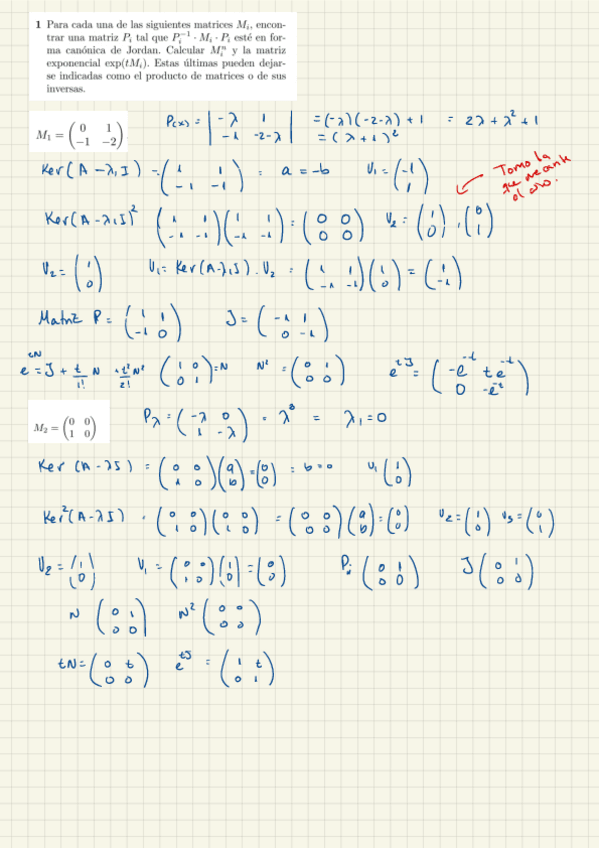 1 Para cada una de las siguientes matrices Mᵢ, encon-
trar una matriz Pᵢ tal que Pᵢ⁻¹ · Mᵢ · Pᵢ esté en for-
ma canónica de Jordan. Calcular Mᵢⁿ y la matriz
exponencial exp(tMᵢ). Estas últimas pueden dejar-
se indicadas como el producto de matrices o de sus
inversas.
M₁ = (0 1; -1 -2) P(x) = |-λ 1; -1 -2-λ| = (-λ)(-2-λ) + 1 = 2λ + λ² + 1
= (λ+1)²
Ker(A - λ₁I) = (1 1; -1 -1) : a = -b U₁ = (-1; 1) Tomo la
que me
Ker(A - λ₁I)² (1 1; -1 -1)(1 1; -1 -1) = (0 0; 0 0) U₂ = (1; 0), (0; 1)
U₂ = (1; 0) U₁ = Ker(A-λ₁I). U₂ = (1 1; -1 -1)(1; 0) = (1; -1)
Matriz P = (1 1; -1 0) J = (-1 1; 0 -1)
e^tN = J + t/1! N + t²/2! N² (1 0; 0 1) = N N² = (0 1; 0 0) e^tJ = (-e^-t te^-t; 0 -e^-t)
M₂ = (0 0; 1 0) Pλ = (-λ 0; 1 -λ) = = λ₁ = 0
Ker (A - λI) = (0 0; 1 0)(a; b) = (0; 0) : b = 0 U₁ (1; 0)
Ker²(A - λI) · (0 0; 1 0)(0 0; 1 0) = (0 0; 0 0)(a; b) = (0; 0) U₂ = (1; 0) U₃ = (0; 1)
U₂ = (1; 0) U₁ = (0 0; 1 0)(1; 0) = (0; 0) P: (0 1; 0 0) J (0 1; 0 0)
N (0 1; 0 0) N² (0 0; 0 0)
tN = (0 t; 0 0) e^tJ = (1 t; 0 1)